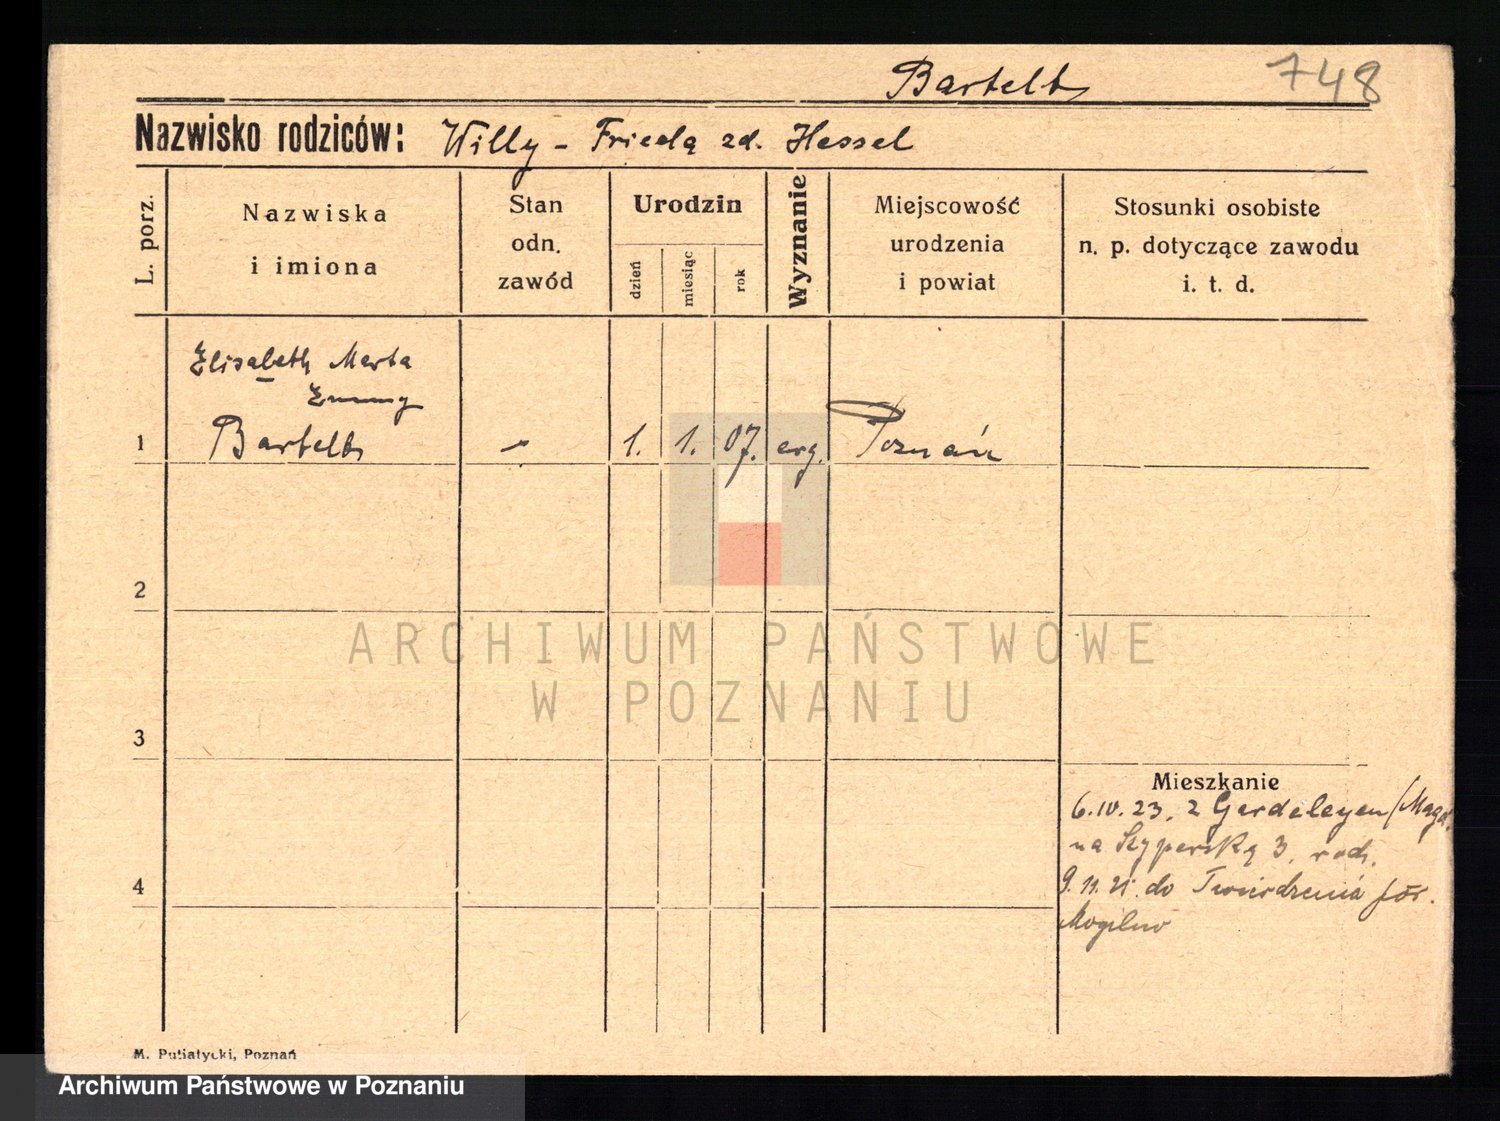 Bartelt 748
Nazwisko rodziców: Willy - Friedą zd. Hessel
L. porz.
Nazwiska
i imiona
Stan
odn.
zawód
Urodzin
dzień
miesiąc
rok
Wyznanie
Miejscowość
urodzenia
i powiat
Stosunki osobiste
n. p. dotyczące zawodu
i. t. d.
Elisabeth Marta
Emmy
1 Bartelt - 1. 1. 07. erg. Poznań
2
ARCHIWUM PAŃSTWOWE
W POZNANIU
3
Mieszkanie
6.IV.23. z Gardelegen/Magd.
na 3, rod.
4
9.11. do Twierdzenia
Mogilno
M. Putiatycki, Poznań
Archiwum Państwowe w Poznaniu